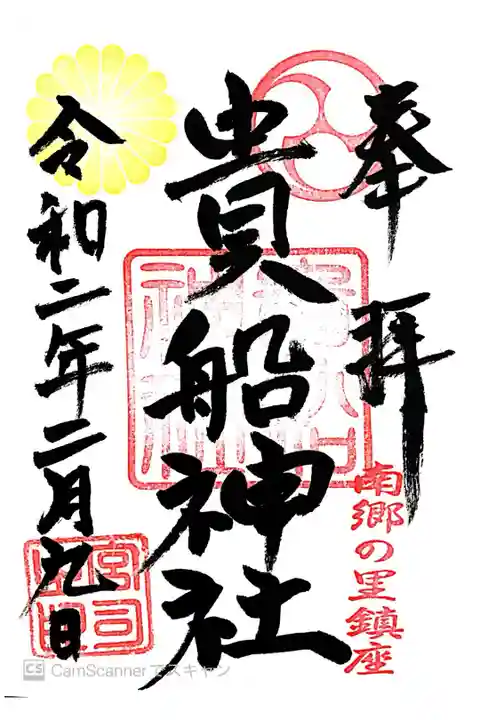 奉拝
南郷の里鎮座
貴船神社
令和二年二月九日
宮司
CS CamScanner でスキャン